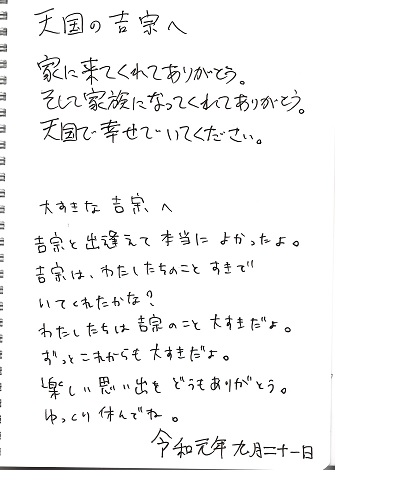 天国の吉宗へ
家に来てくれてありがとう。
そして家族になってくれてありがとう。
天国で幸せでいてください。
大すきな吉宗へ
吉宗と出逢えて本当によかったよ。
吉宗は、わたしたちのことすきで
いてくれたかな?
わたしたちは吉宗のこと大すきだよ。
ずっとこれからも大すきだよ。
楽しい思い出をどうもありがとう。
ゆっくり休んでね。
令和元年九月二十一日